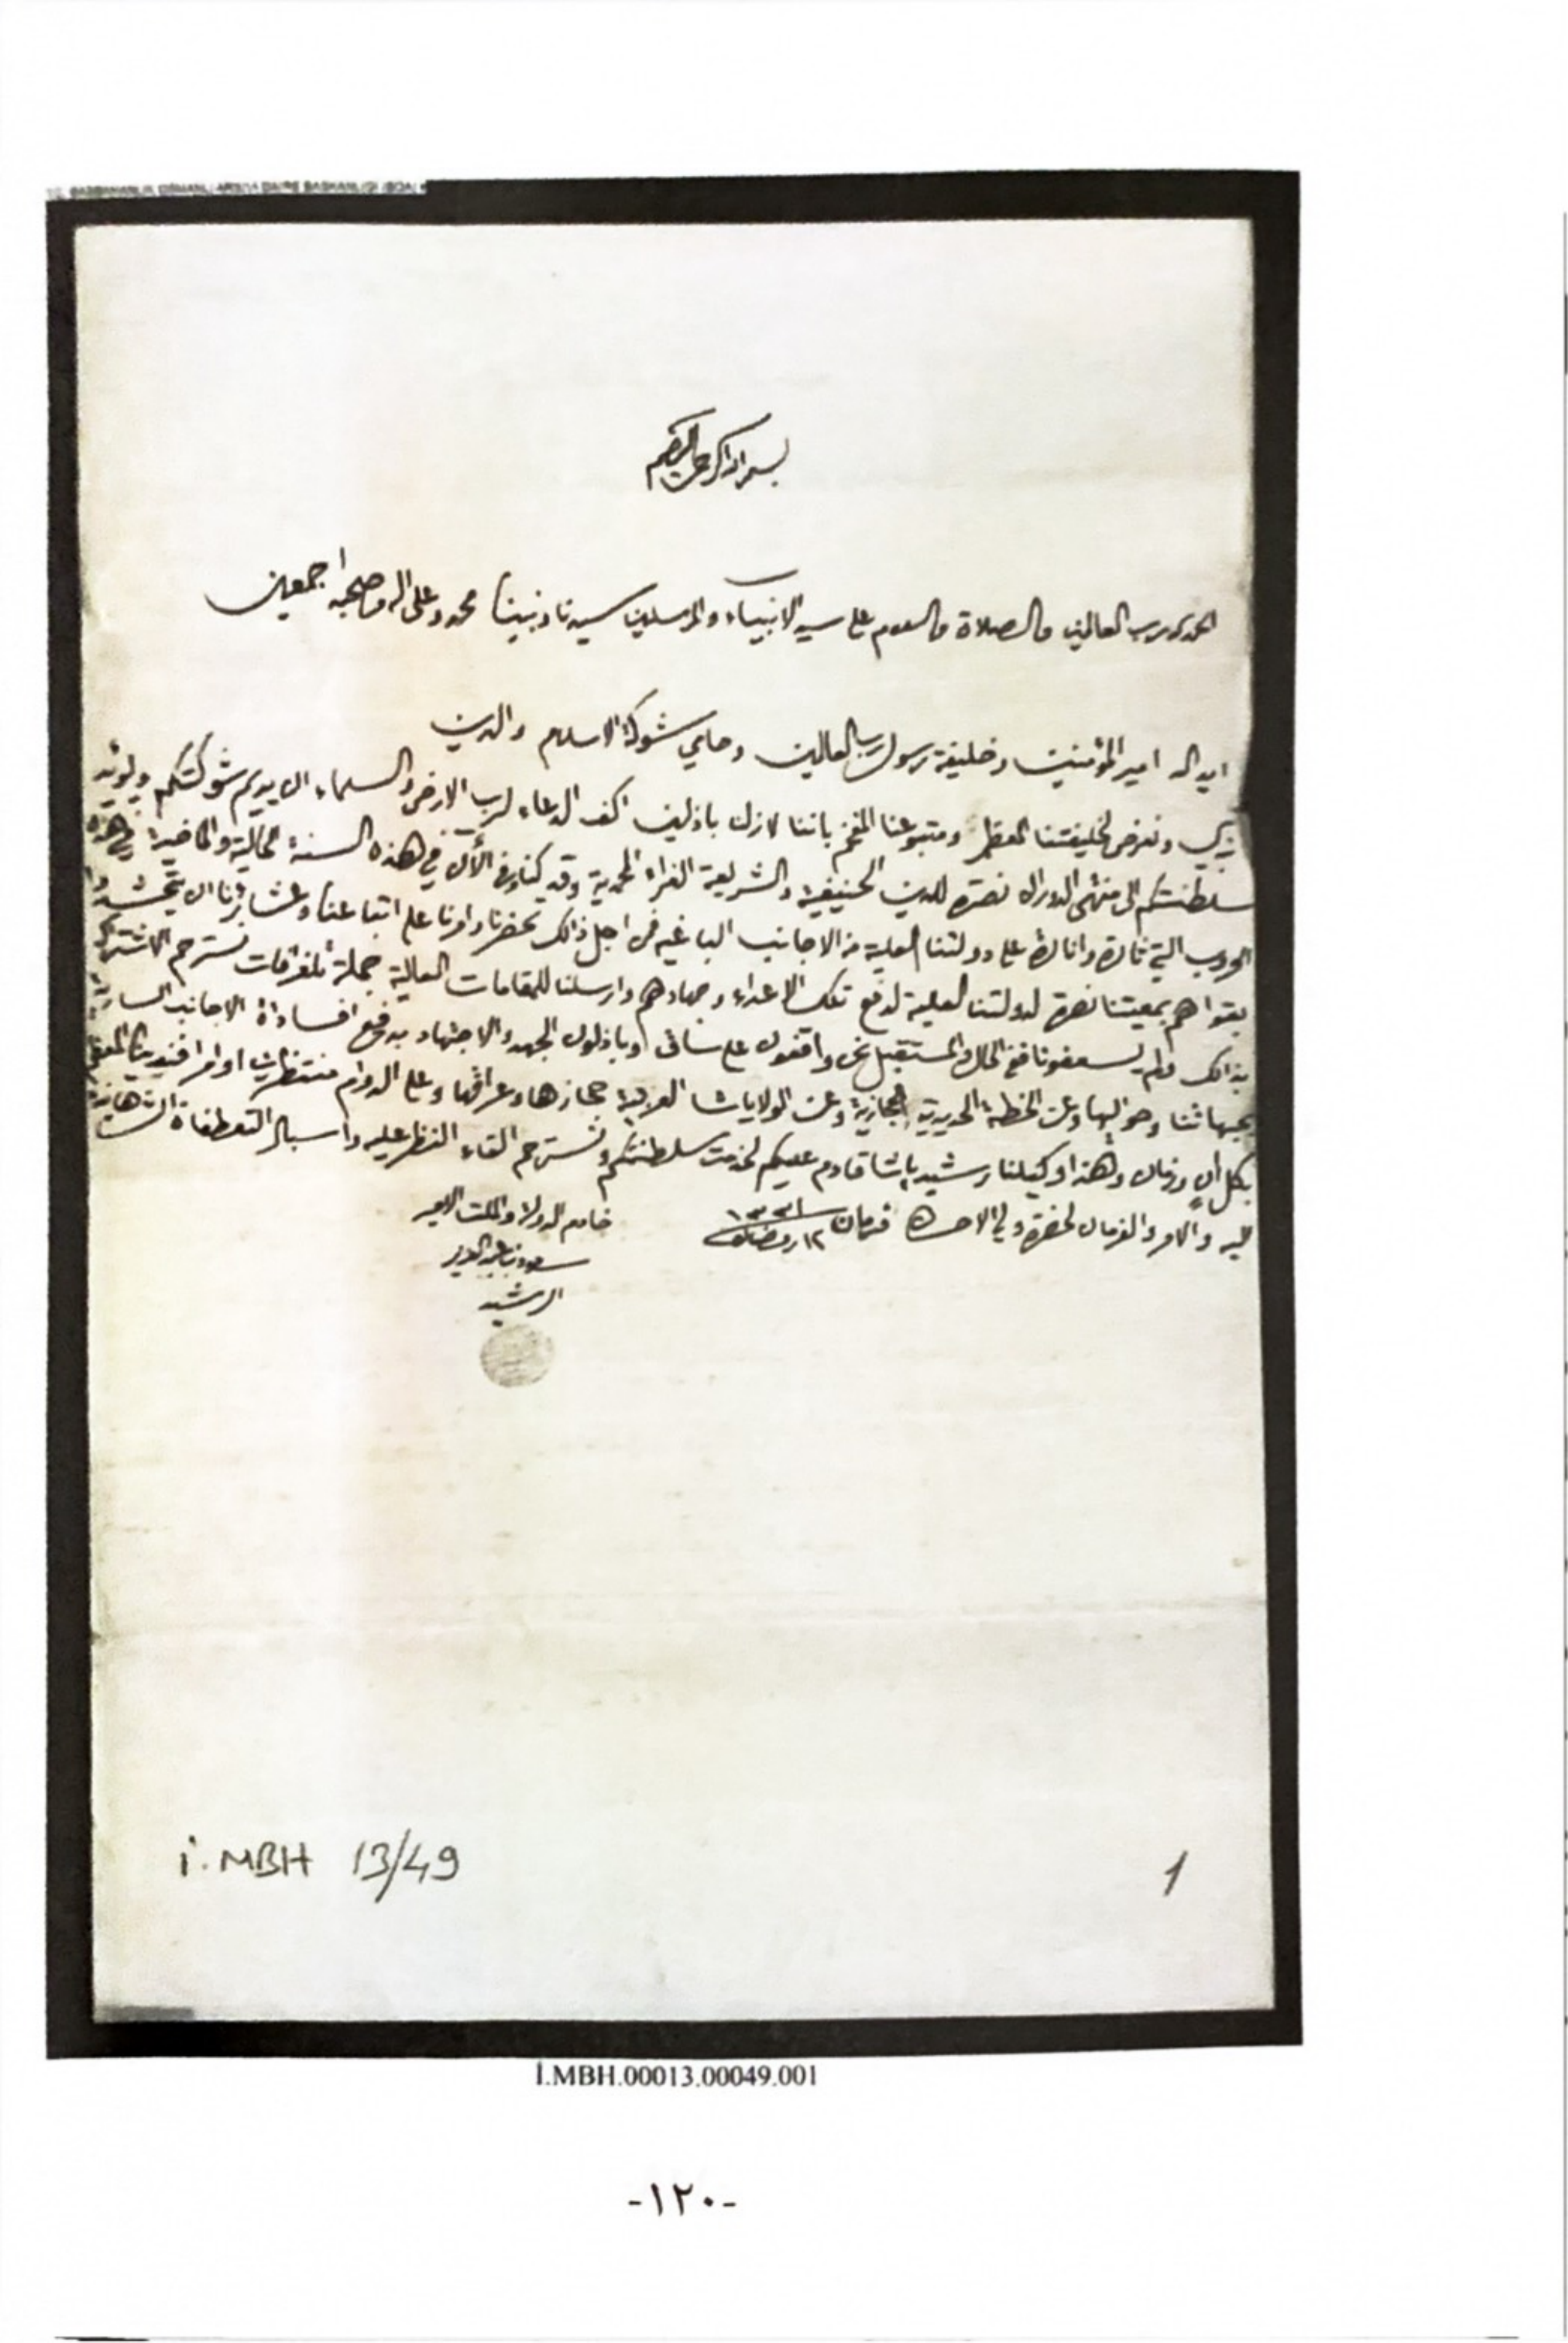 بسم الله الرحمن الرحيم
الحمد لله رب العالمين والصلاة والسلام على سيد الانبياء والمرسلين سيدنا ونبينا محمد وعلى اله وصحبه اجمعين
ايد الله امير المؤمنين وخليفة رسول رب العالمين وحامي شوكة الاسلام والدين
ونعرض لخليفتنا المعظم ومتبوعنا المفخم باننا لازلنا باذلين اكف الدعاء لرب الارض والسماء ان يديم شوكتكم ويؤيد
سلطنتكم الى منتهى الدوران نصرة للدين الحنيفية والشريعة الغراء المحمدية وقد كنا في هذه السنة الحالية والماضية في هذه
الحروب التي على دولتنا العلية من الاجانب الباغيه فمن اجل ذالك تحضرنا وامرنا على اتباعنا وعشايرنا ان
بقواهم بمعيتنا نصرة لدولتنا العلية لدفع تلك الاعداء وجهادهم وارسلنا للمقامات العالية جملة تلغرافات نسترحم الاشتراك
بذالك ولم يسعفونا ففي الحال والمستقبل نحن واقفون على ساق وباذلون الجهد والاجتهاد بدفع افسادات الاجانب
بجهاتنا وحواليها وعن الخطة الحديدية الحجازية وعن الولايات العربية حجازها وعراقها وعلى الدوام منتظرين اوامر افندينا
بكل ان وزمان وهذا وكيلنا رشيد باشا قادم عليكم لخدمت سلطنتكم ونسترحم القاء النظر عليه واسبال التعطفات
عليه والامر والفرمان لحضرة ولي الامر ١٢ رمضان ١٣٣١
خادم الدولة والملت الامير
سعود بن عبد العزيز
الرشيد
İ.MBH 13/49
1
İ.MBH.00013.00049.001
-١٢٠-